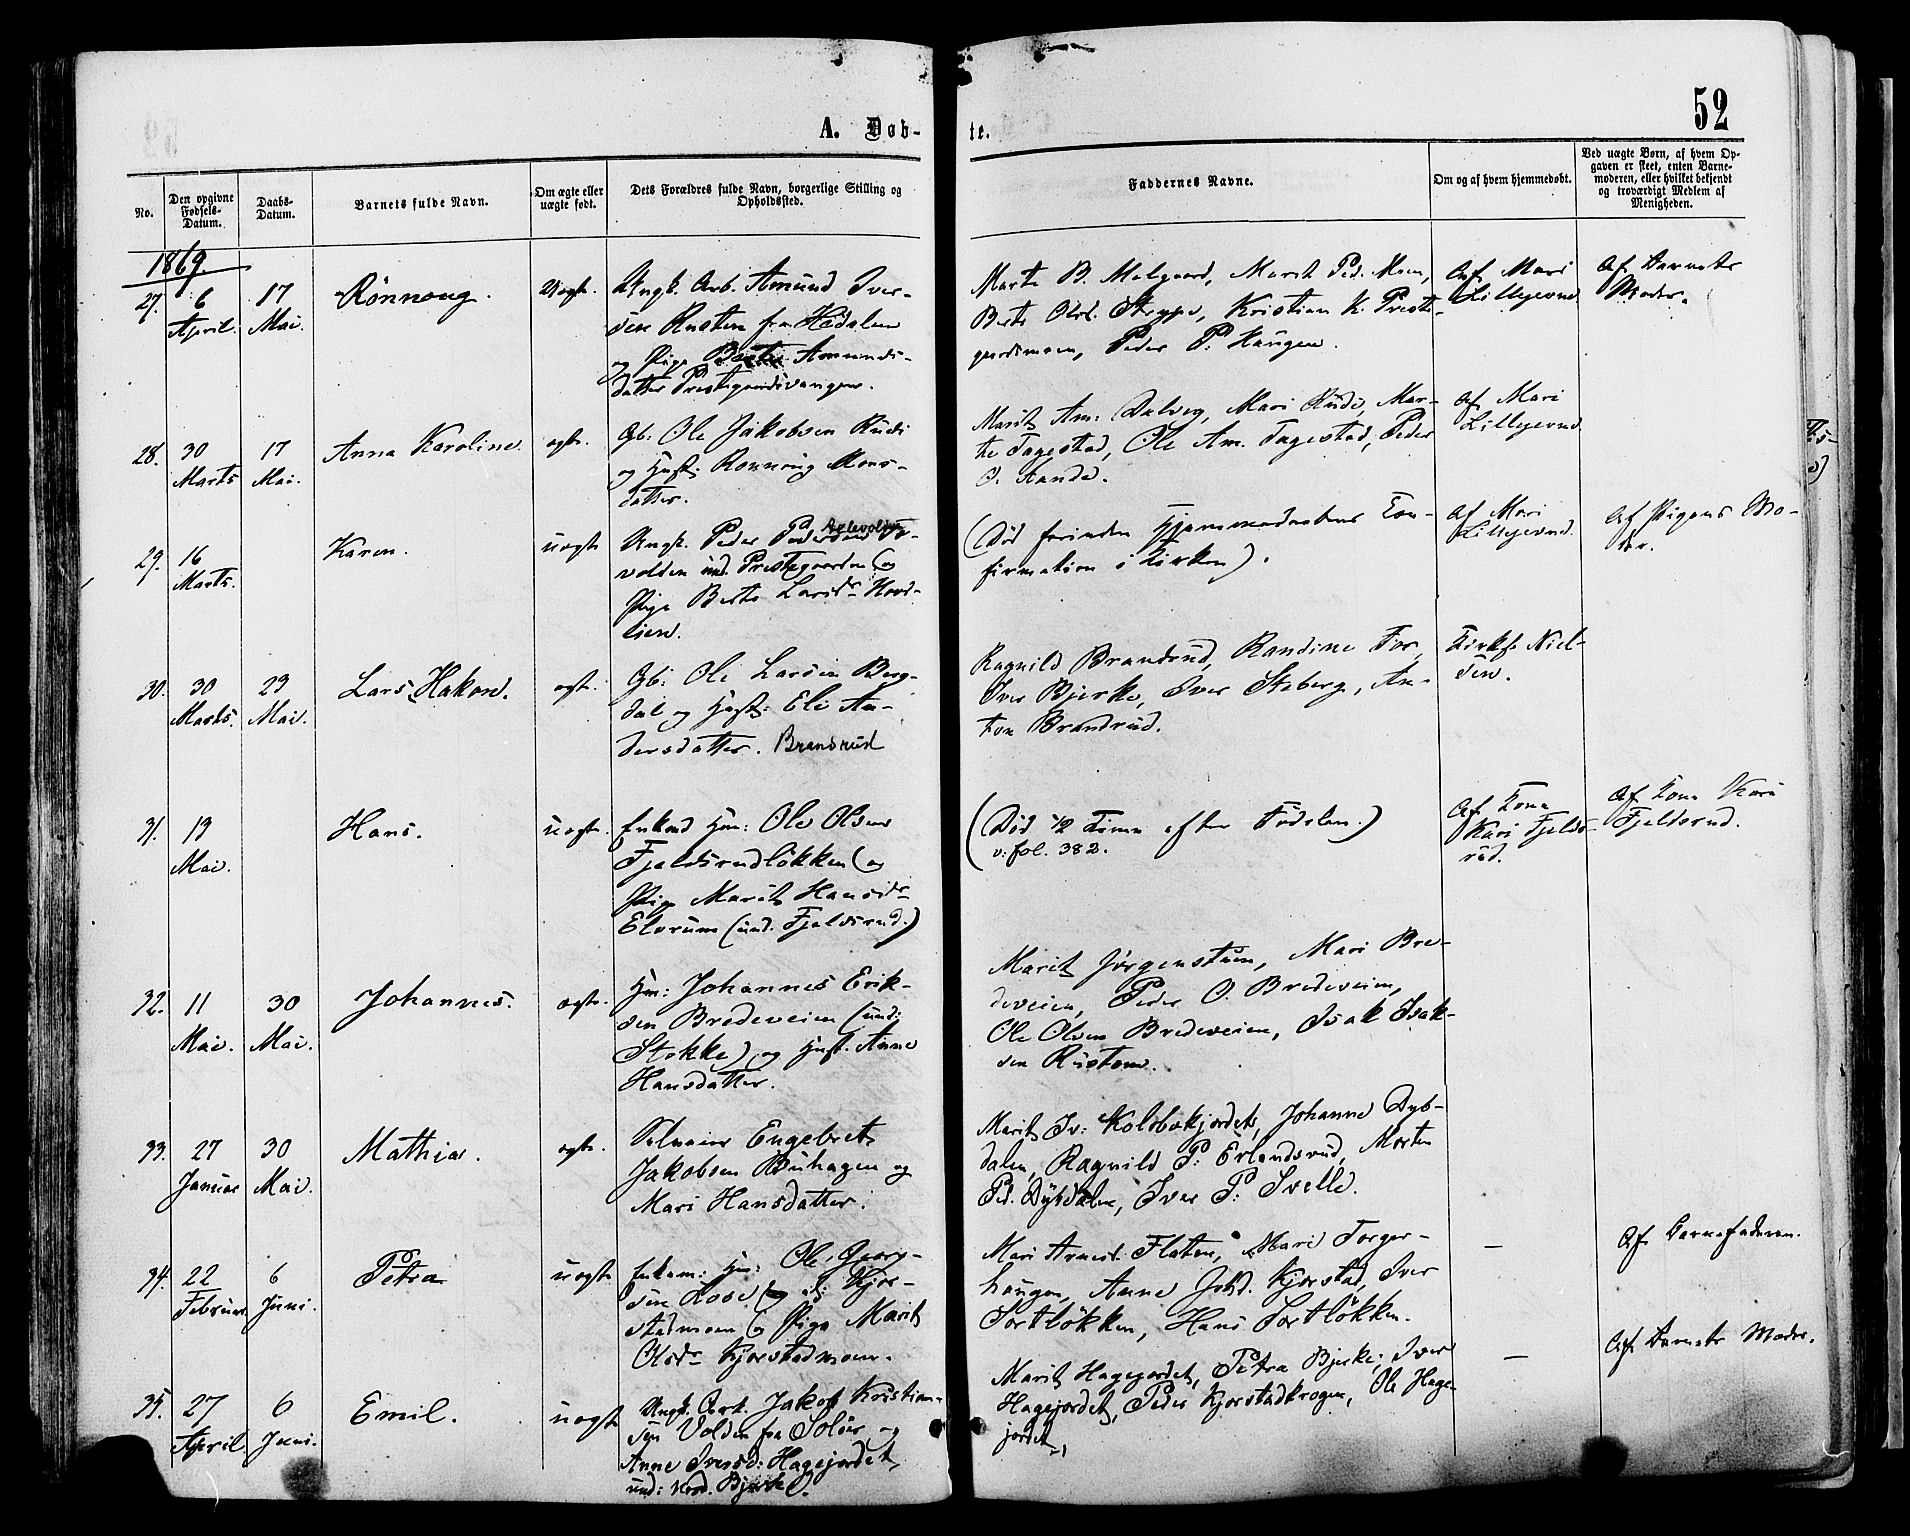 52
A. Døb-
te.
No.
Den opgivne
Fødsels-
Datum.
Daabs-
Datum.
Barnets fulde Navn.
Om ægte eller
uægte født.
Dets Forældres fulde Navn, borgerlige Stilling og
Opholdssted.
Faddernes Navne.
Om og af hvem hjemmedøbt.
Ved uægte Børn, af hvem Op-
gaven er skeet, enten Barne-
moderen, eller hvilket bekjendt
og troværdigt Medlem af
Menigheden.
1869.
27. 6 April. 17 Mai.
Rönnoug.
Uægt.
Ungk. Arb. Amund Iver-
sen Rusten fra Hedalen
og Pige Berte Amunds-
datter Prestegardsvangen.
Marte B. Melgaard, Marit Ped. Moen,
Berte Olsd. Strype, Kristian K. Preste-
gardsmoen, Peder P. Haugen.
Af Mari
Lillejevnd
Af Barnets
Moder.
28. 30 Marts 17 Mai.
Anna Karoline.
ægte.
Gb: Ole Jakobsen Rudi
og Hust. Rönnoug Mons-
datter.
Marit Am: Dalveg, Mari Rudi, Mar-
te Tagestad, Ole Am. Tagestad, Peder
O. Sande.
Af Mari
Lillejevnd
29. 16 Marts.
Karen.
uægte
Ungk. Peder Pedersen
volden und. Prestegaarden og
Pige Berte Larsdr Hovd-
lien.
(Död forinden Hjemmedaabens Con-
firmation i Kirken).
Af Mari
Lillejevnd.
Af Pigens Mo-
der.
30. 30 Marts. 23 Mai.
Lars Hakon.
ægte.
Gb: Ole Larsen Berg-
dal og Hust: Eli An-
dersdatter. Brandrud
Ragnild Brandrud, Randine For,
Iver Bjerke, Iver Staberg, An-
ton Brandrud.
Kirks. Niel-
sen.
31. 13 Mai.
Hans.
uægte.
Enkem Hm: Ole Olsen
Fjeldsrudlökken og
Pige Marit Hansdr
Elvrum (und. Fjeldsrud.)
(Död 1/2 Time efter Födslen.)
v: fol. 382.
Af Kona
Kari Fjelds-
rud.
Af Kona Kari
Fjeldsrud.
32. 11 Mai. 30 Mai.
Johannes.
ægte.
Hm: Johannes Erik-
sen Bredeveien (und:
Stokke) og Hust. Anne
Hansdatter.
Marit Jörgenstuen, Mari Bre-
deveien, Peder O. Bredeveien,
Ole Olsen Bredeveien, Isak Isak-
sen Rusten.
33. 27 Januar 30 Mai.
Mathias.
ægte.
Selveier Engebret
Jakobsen Buhagen og
Mari Hansdatter.
Marit Iv: Kolobækjordet, Johanne Dyb-
dalen, Ragnild P: Erlandsrud, Morten
Ped. Dybdalen, Iver P: Svelle.
34. 22 Februar 6 Juni.
Petra
uægte
Enkem: Hm: Ole Georg-
sen Lose ei: Kjör-
stadmoen og Pige Marit
Olsdr Kjörstadmoen.
Mari Arnesd. Flaten, Mari Torger-
haugen, Anne Johsd. Kjörstad, Iver
Sortlökken, Hans Sortlökken.
—
Af Barnefaderen.
35. 27 April 6 Juni.
Emil.
uægte
Ungk. Arb. Jakob Kristian-
sen Volden fra Solör og
Anne Iversd: Hagejordet,
und: Nord. Bjerke.
Marit Hagejordet, Petra Bjerke, Iver
Hagejordet, Peder Kjörstadkrogen, Ole Hage-
jordet,
—
Af Barnets Moder.